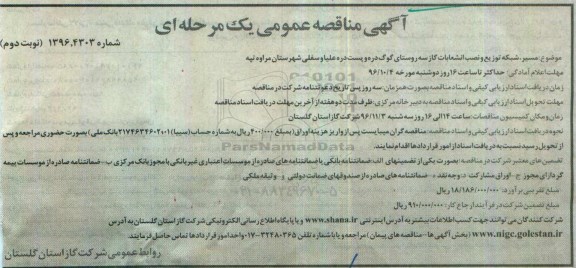 آگهی مناقصه عمومی یک مرحله ای
شماره ۱۳۹۶.۴۳۰۳ (نوبت دوم)
موضوع: مسیر، شبکه توزیع و نصب انشعابات گاز سه روستای گوک دره و پست دره علیا و سفلی شهرستان مراوه تپه
مهلت اعلام آمادگی: حداکثر تا ساعت ۱۶ روز دوشنبه مورخه ۹۶/۱۰/۴
زمان دریافت اسناد ارزیابی کیفی و اسناد مناقصه بصورت همزمان: سه روز پس از تاریخ دعوتنامه شرکت در مناقصه
مهلت تحویل اسناد ارزیابی کیفی و اسناد مناقصه به دبیرخانه مرکزی: ظرف مدت دو هفته از آخرین مهلت دریافت اسناد مناقصه
زمان و مکان کمیسیون مناقصات: ساعت ۱۴ الی ۱۶ روز سه شنبه ۹۶/۱۱/۳ شرکت گاز استان گلستان
نحوه دریافت اسناد ارزیابی کیفی و اسناد مناقصه: مناقصه گران میبایست پس از واریز هزینه اوراق (بمبلغ ۴۰۰/۰۰۰ ریال به شماره حساب (سیبا) ۲۱۷۴۶۳۴۶۰۲۰۰۱ بانک ملی) بصورت حضوری مراجعه و پس
از تحویل رسید نسبت به دریافت اسناد از امور قراردادها اقدام نمایند.
تضمین های معتبر شرکت در مناقصه: بصورت یکی از تضمینهای الف: ضمانتنامه بانکی یا ضمانتنامه های صادره از موسسات اعتباری غیربانکی با مجوز بانک مرکزی ب- ضمانتنامه صادره از موسسات بیمه
گر دارای مجوز ج- اوراق مشارکت د- وجه نقد ه- ضمانتنامه های صادره از صندوقهای ضمانت دولتی و- وثیقه ملکی
مبلغ تقریبی برآورد: ۱۸/۱۸۶/۰۰۰/۰۰۰ ریال
مبلغ تضمین شرکت در فرآیند ارجاع کار: ۹۱۰/۰۰۰/۰۰۰ ریال
شرکت کنندگان می توانند جهت کسب اطلاعات بیشتر به آدرس اینترنتی www.shana.ir و یا پایگاه اطلاع رسانی الکترونیکی شرکت گاز استان گلستان به آدرس
www.nigc.golestan.ir (بخش آگهی ها-مناقصه های پیمان) مراجعه و یا با شماره تلفن ۳۲۴۸۰۳۶۵-۰۱۷ واحد امور قراردادها تماس حاصل فرمایند.
روابط عمومی شرکت گاز استان گلستان
ParsNamadData